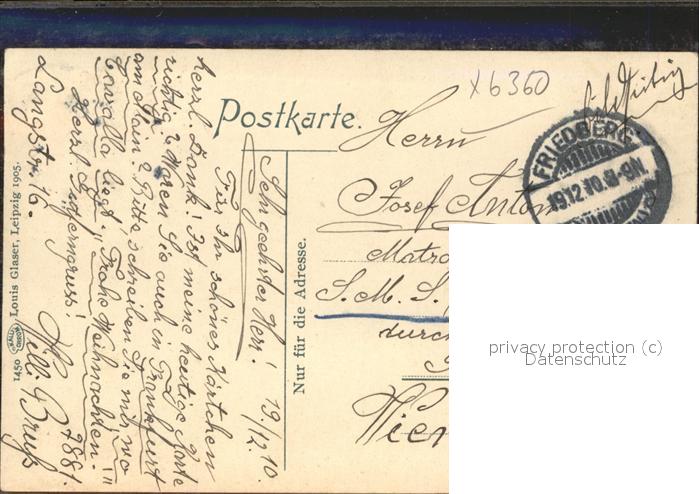 X6360
Postkarte.
Sehr geehrter Herr! 19/12.10.
Für Ihr schönes Kärtchen
herzl. Dank! Ist meine heutige Karte
richtig? Waren Sie auch in Frankfurt
am Main? Bitte schreiben Sie mir, wo
liegt. "Frohe Weihnachten!"
Herzl. 2881.
Willi
Langstr. 16.
Herrn
Josef Anton
Matro
S. M. S.
durch
Wien
FRIEDBERG
19.12.10.8-9N.
Nur für die Adresse.
1450 Louis Glaser, Leipzig 1905.
privacy protection (c)
Datenschutz